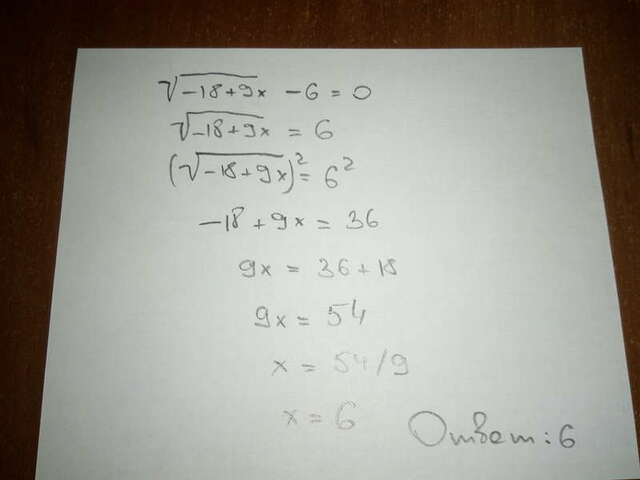 √-18+9x -6=0
√-18+9x = 6
(√-18+9x)²=6²
-18+9x=36
9x = 36+18
9x = 54
x = 54/9
x = 6
Ответ: 6